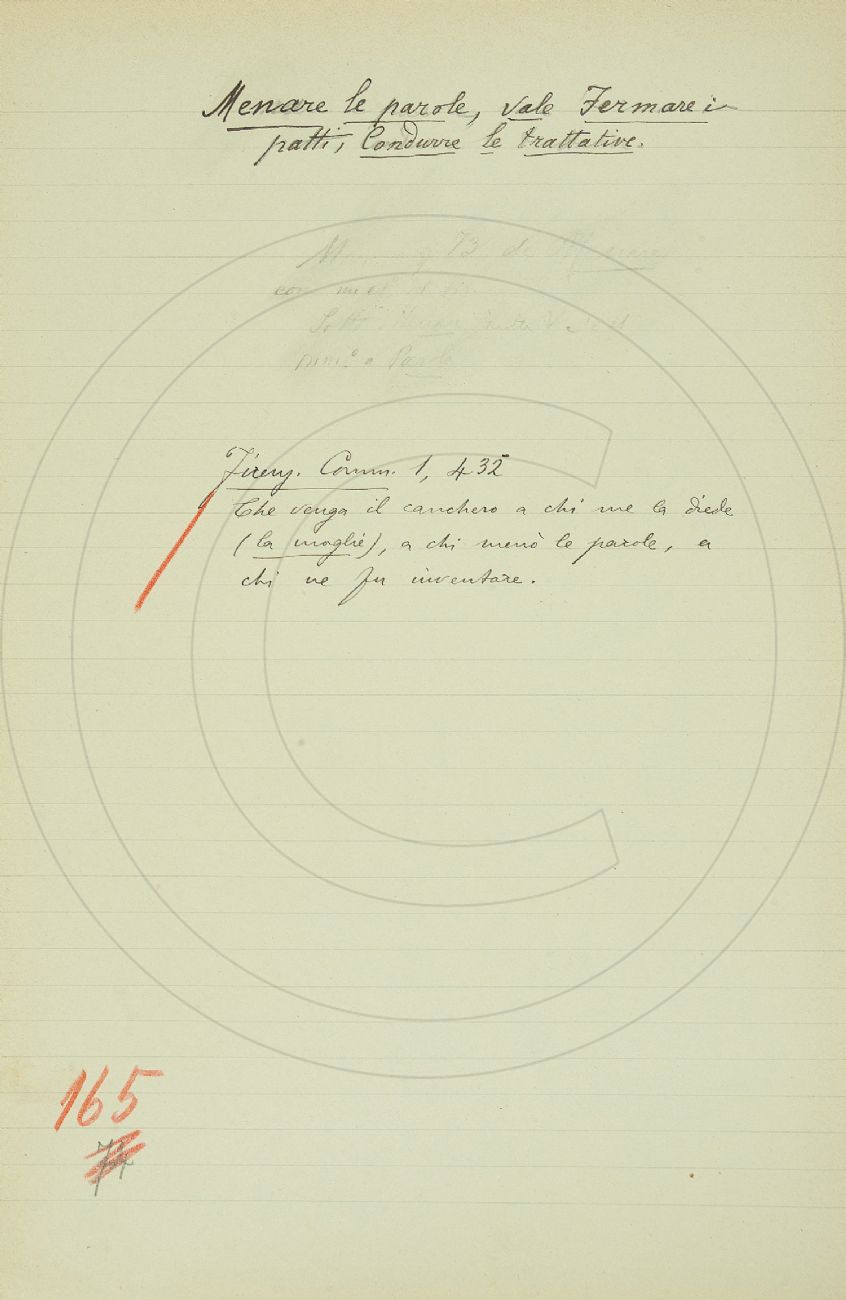 Menare le parole, vale Fermare i
patti, Condurre le trattative.
Firenz. Comm. 1, 432
Che venga il canchero a chi me la diede
(la moglie), a chi menò le parole, a
chi ne fu inventore.
165
74